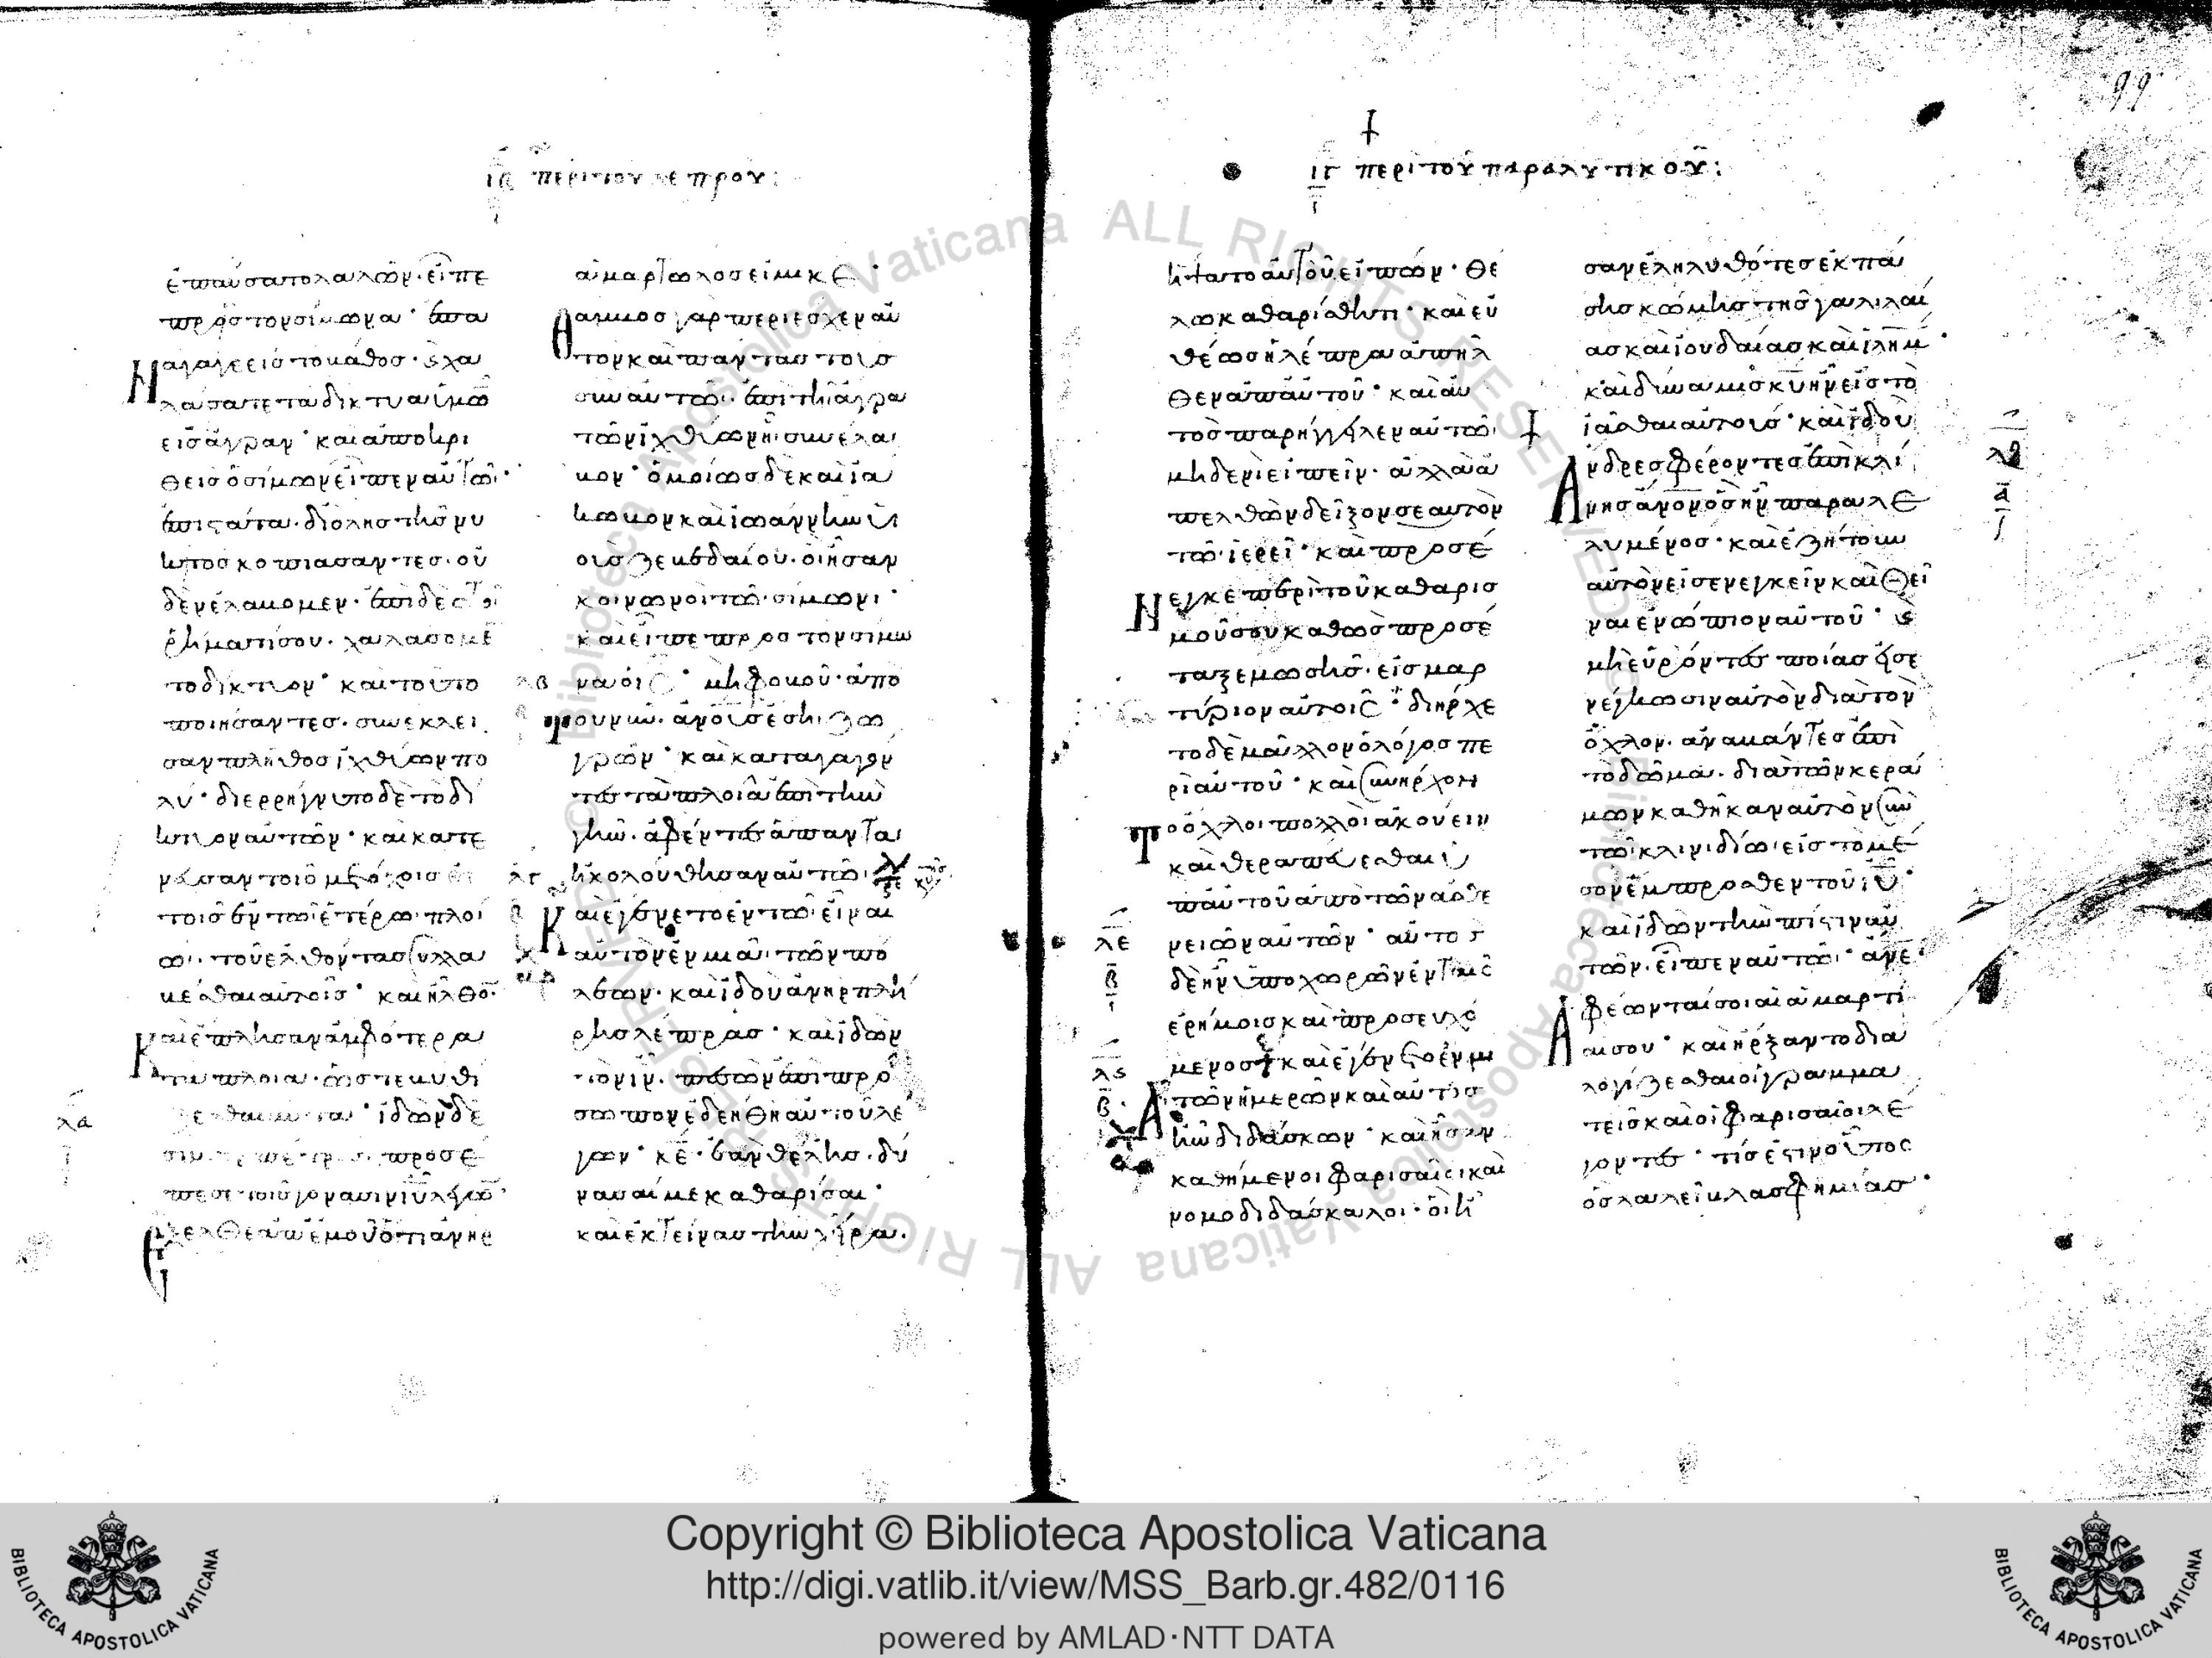 ιβ περι του λεπρου:
ἐπαύσατο λαλῶν· εἶπε
πρὸς τον σίμωνα· ἐπα
ναγαγε εἰς το βάθος· ϗ χα
λασατε τα δικτυα ὑμῶ
εἰς ἄγραν· και ἀποκρι
θεις ὁ σίμων εἶπεν αὐτῶ·
ἐπιστάτα· δι ὅλης τῆς νυ
κτος κοπιασαντες· οὐ
δεν ἐλαβομεν· ἐπι δε τῶ
ῥηματι σου· χαλασομε
το δικτυον· και τουτο
ποιησαντες· συνεκλει
σαν πλῆθος ἰχθύων πο
λυ· διερρήγνυτο δὲ τὸ δί
κτυον αὐτῶν· και κατε
νευσαν τοις μετόχοις
τοις ἐν τῶ ἑτέρω πλοί
ω· τοῦ ἐλθόντας συλλα
βέσθαι αὐτοῖς· και ἦλθο·
και ἔπλησαν ἀμφότερα
τα πλοια· ὥστε βυθι
ζεσθαι αυτα· ἰδὼν δὲ
σιμων πετρος· προσέ
πεσε τοις γονασιν ιυ λέγω·
ἔξελθε ἀπ ἐμοῦ ὅτι ἀνηρ
ἁμαρτωλος εἰμι κε·
θαμβος γαρ περιεσχεν αὐ
τον και παντας τους
συν αὐτῶ· ἐπι τῆ ἄγρα
τῶν ἰχθύων ἧ συνελα
βον· ὁμοίως δὲ και ἰα
κωβον και ἰωαννην υἱ
οὺς ζεβεδαίου· οἳ ἦσαν
κοινωνοι τῶ σίμωνι·
και εἶπε προς τον σιμω
να ὁ ις· μη φοβοῦ· ἀπο
του νυν· ἀνους ἔση ζω
γρῶν· και καταγαγον
τες τὰ πλοῖα ἐπι την
γην· ἀφέντες ἅπαντα
ἠκολούθησαν αὐτῶ·
και ἐγένετο ἐν τῶ εἶναι
αὐτὸν ἐν μια τῶν πό
λεων· και ἰδου ἀνηρ πλή
ρης λέπρας· και ἰδων
τον ιν· πεσων ἐπι προ
σωπον ἐδεήθη αυτου λέ
γων· κε· ἐαν θέλης· δύ
νασαί με καθαρίσαι·
και ἐκτείνας την χεῖρα·
λα
λβ
λγ
99
ιγ περι του παραλυτικοῦ:
ἥψατο αὐτοῦ εἰπών· θέ
λω καθαρίσθητι· και εὐ
θέως ἡ λέπρα ἀπῆλ
θεν ἀπ αὐτοῦ· και αὐ
τὸς παρήγγειλεν αὐτῶ·
μηδενι εἰπεῖν· ἀλλα ἀ
πελθων δεῖξον σεαυτὸν
τῶ ἱερεῖ· και προσέ
νεγκε περι τοῦ καθαρισ
μοῦ σου καθὼς προσέ
ταξε μωσῆς· εἰς μαρ
τύριον αὐτοις· διήρχε
το δὲ μᾶλλον ὁ λόγος πε
ρι αὐτοῦ· και συνήρχον
το ὄχλοι πολλοι ἀκούειν
και θεραπεύεσθαι ὑ
π αὐτοῦ ἀπο τῶν ἀσθε
νειῶν αὐτῶν· αὐτος
δὲ ἦν ὑποχωρῶν ἐν ταις
ἐρήμοις και προσευχό
μενος και ἐγένετο ἐν μια
τῶν ἡμερῶν και αὐτὸς
ἦν διδάσκων· και ἦσαν
καθήμενοι φαρισαῖοι και
νομοδιδάσκαλοι· οἳ ἦ
σαν ἐληλυθότες ἐκ πά
σης κώμης της γαλιλαί
ας και ἰουδαίας και ιλημ·
και δύναμις κυ ἦν εἰς τὸ
ἰᾶσθαι αὐτούς· και ἰδου
ἄνδρες φέροντες ἐπι κλί
νης ἄνον ὃς ἦν παραλε
λυμένος· και ἐζήτουν
αὐτὸν εἰσενεγκεῖν και θεῖ
ναι ἐνώπιον αὐτοῦ· ϗ
μη εὑρόντες ποίας εἰσε
νέγκωσιν αὐτὸν διὰ τὸν
ὄχλον· ἀναβάντες ἐπι
τὸ δῶμα· δια τῶν κερά
μων καθῆκαν αὐτὸν συν
τῶ κλινιδίω εἰς το μέ
σον ἔμπροσθεν τοῦ ιυ·
και ἰδων την πίστιν αὐ
τῶν· εἶπεν αὐτῶ· ανε·
ἀφέωνταί σοι αἱ ἁμαρτί
αι σου· και ἤρξαντο δια
λογίζεσθαι οἱ γραμμα
τεῖς και οἱ φαρισαῖοι λέ
γοντες· τίς ἐστιν οὗτος
ὃς λαλεῖ βλασφημίας·
λε
β
λς
β
λζ
α
Copyright © Biblioteca Apostolica Vaticana
http://digi.vatlib.it/view/MSS_Barb.gr.482/0116
powered by AMLAD·NTT DATA
BIBLIOTECA APOSTOLICA VATICANA
BIBLIOTECA APOSTOLICA VATICANA
© Biblioteca Apostolica Vaticana ALL RIGHTS RESERVED